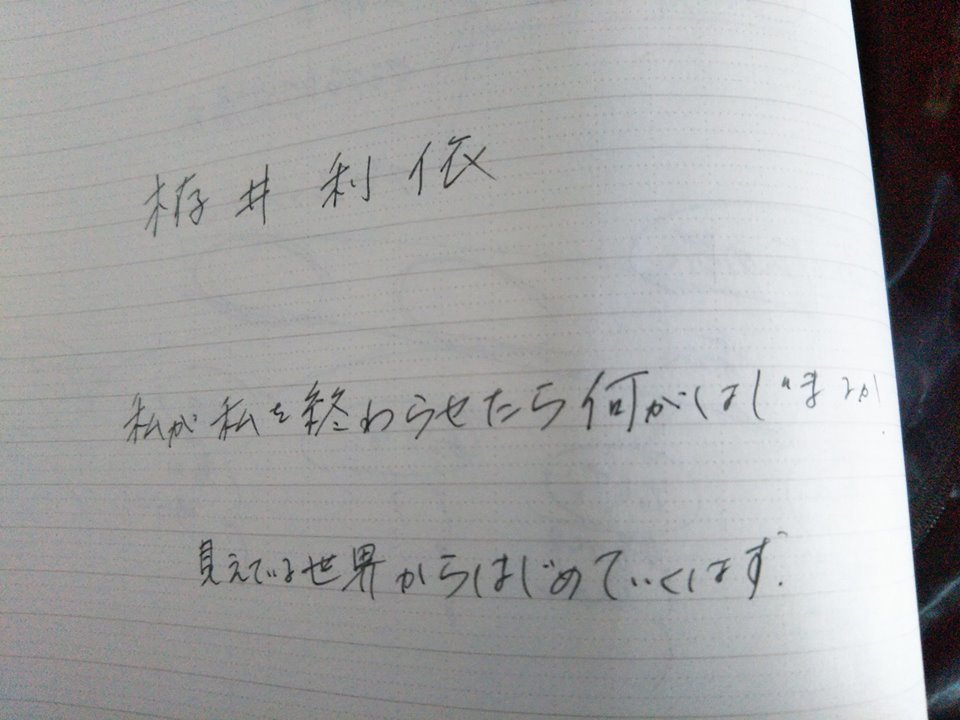 栫井利依
私が私を終わらせたら何がはじまるか
見えている世界からはじめていくはず。